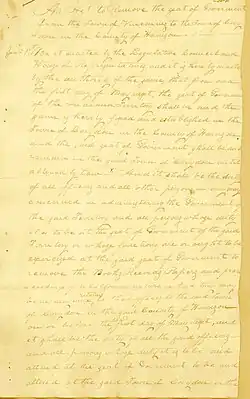 An Act to remove the seat of Government
from the Town of Vincennes to the Town of Corydon
in the County of Harrison
Be it enacted by the Legislative Council and
House of Representatives, and it is hereby enacted
by the authority of the same, that from and
the first day of May next, the seat of Government
of the Indiana Territory shall be and the
same is hereby fixed and established in the
Town of Corydon in the County of Harrison
and the said seat of Government shall be and
remain in the said Town of Corydon until
by Law. And it shall be the duty
of all officers and all other persons
concerned in administering the Government of
the said Territory and all persons whose duty
it is to be at the seat of Government of the said
Territory or whose functions are or ought to be
exercised at the said seat of Government to
remove the Books, Records, papers and
in the said Town
of Corydon in the said County of Harrison
on or before the first day of May next, and
it shall be the duty of all the said officers
and all persons whose duty it is to
attend at the seat of Government to be and
attend at the said Town of Corydon